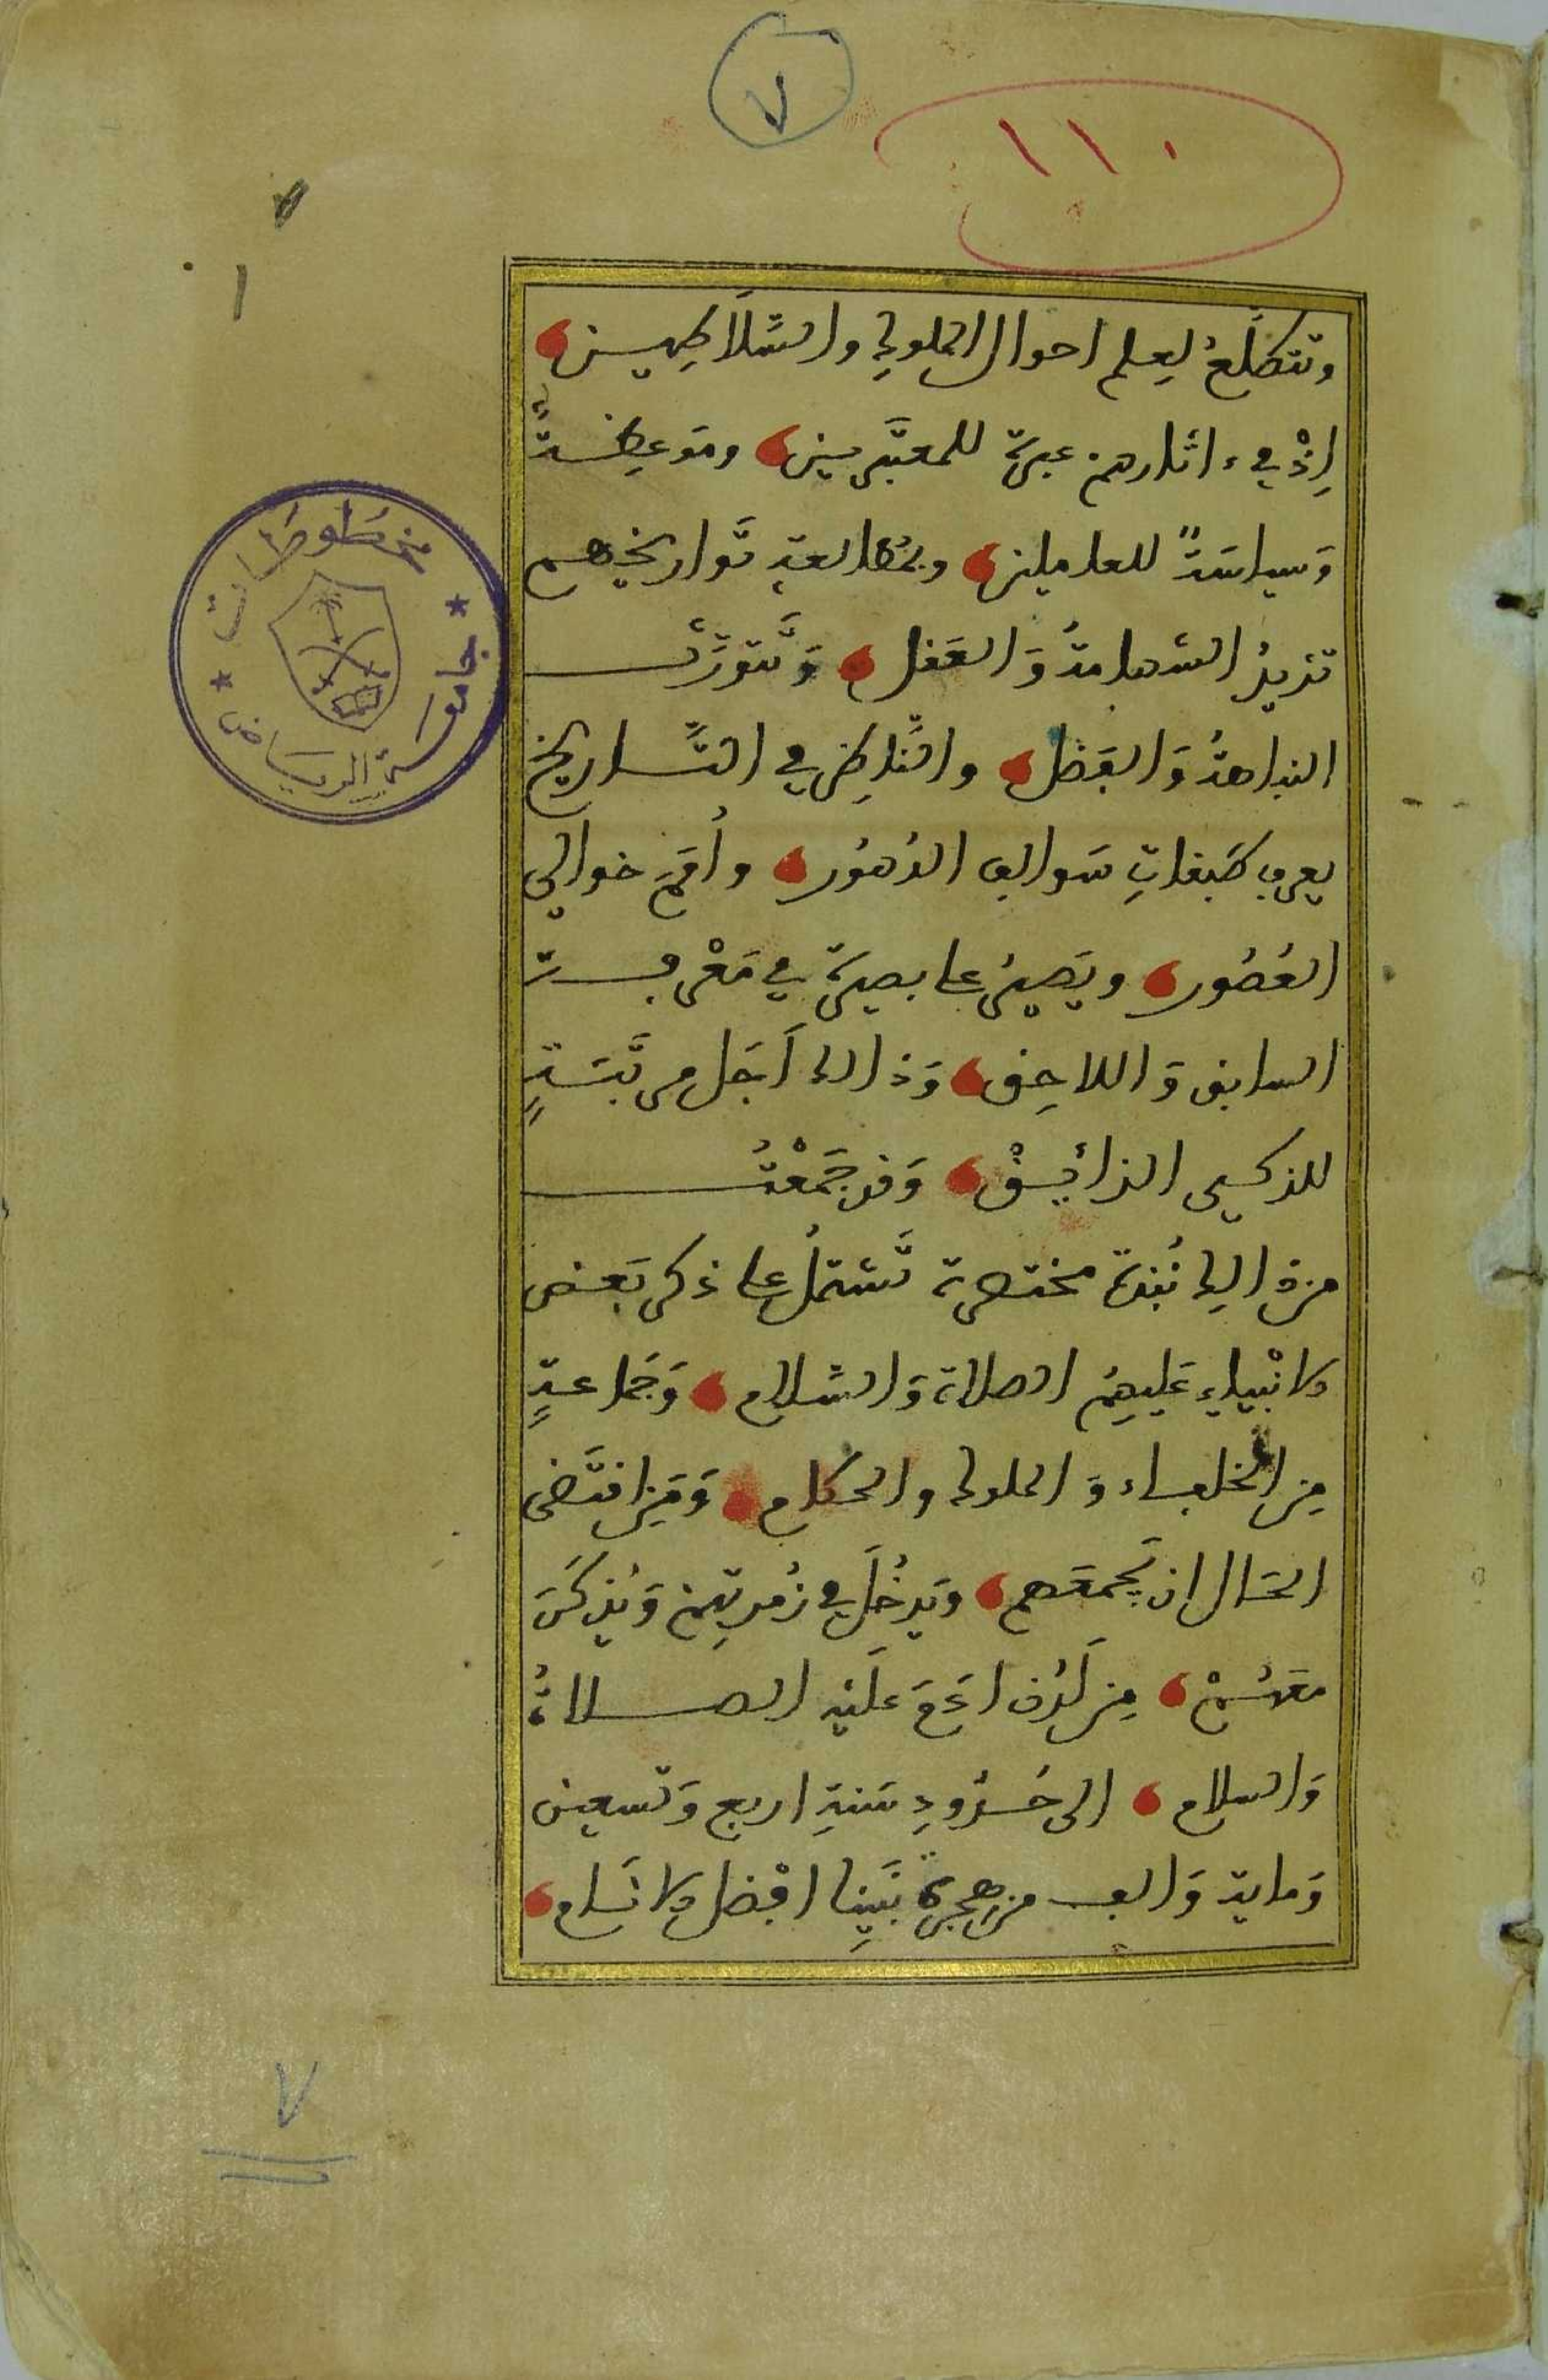 ٧
١١٠
١
وتتطلع لعلم احوال الملوك والسَّلَاطِيـن
اِذْ في ءاثارهم عبرة للمعتبرين ومَوعِظـةً
وَسياسَةً للعاملين وبمُطالعةِ تَواريخهم
تزيدُ الشهامةُ وَالعَقل وَتَتوَرَّث
النباهةُ وَالفَضل والنَّاظِر في التَّـاريخ
يعرف طَبقاتِ سَوالف الدُهُور وأُمَمَ خوالي
العُصُور ويَصِيرُ علَى بصيرَة في مَعْرفـة
السابق وَاللاحِق وَذالك اَجَل مرتَبَـةٍ
للذكـي الذائـقْ وَقد جَمَعْتُ
من ذالك نُبْذة مختصرة تَشتملُ على ذكر بَعض
الانْبياءِ عَليهِمُ الصلاة وَالسَّلام وَجَماعةٍ
مِن الخلفـاء وَالملوك والحكام وَمَن اقتَضى
الحَـال ان يَجمعَهم وَيَدخُلَ في زُمرتِهم وَيُذكَرَ
معَهُـمْ مِن لَدُن اٰدَمَ عَلَيْه الصـلاةُ
وَالسلام الى حُـدُودِ سَنةِ اربع وَتسعين
وَماية وَالف من هجرَةِ نَبَينِا افْضل الانَـام
مخطوطات
جامعة الرياض
٧